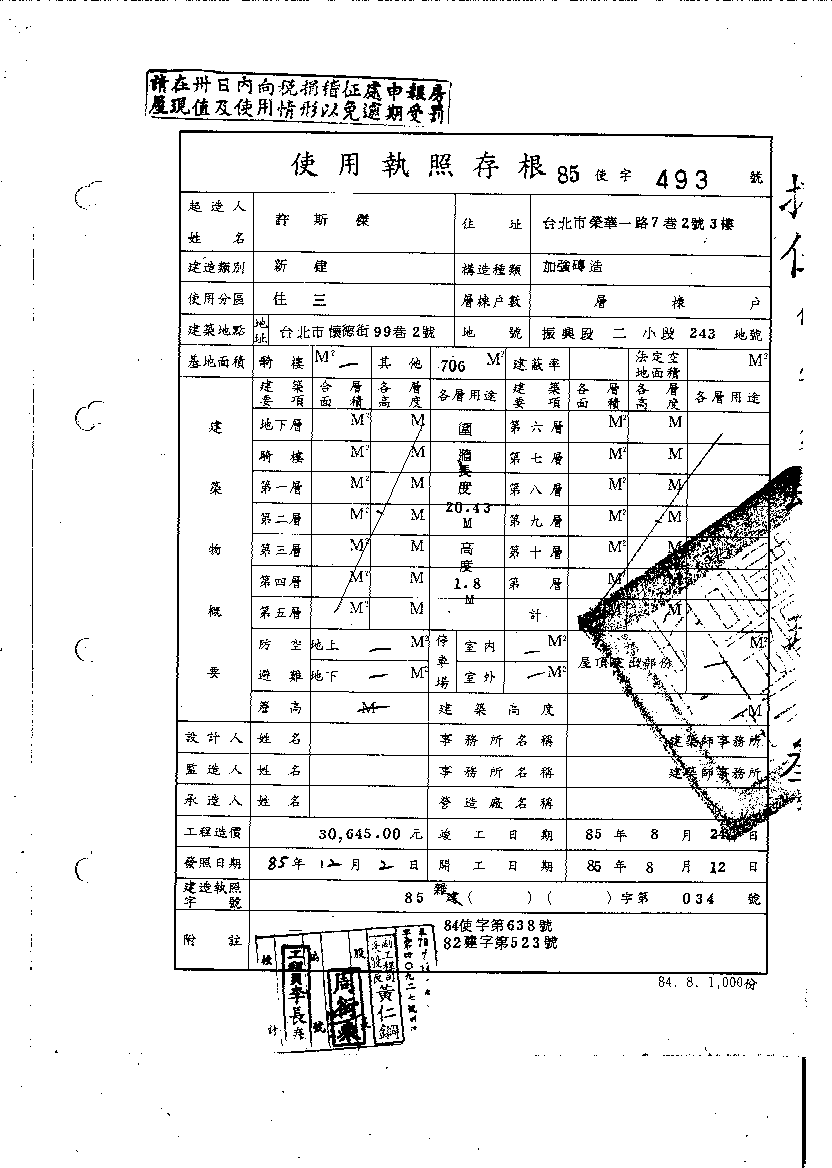 請在卅日內向稅捐稽征處申報房
屋現值及使用情形以免逾期受罰
使用執照存根 85 使字 493 號
起造人姓名 許斯傑 住址 台北市榮華一路7巷2號3樓
建造類別 新建 構造種類 加強磚造
使用分區 住三 層棟戶數 層 棟 戶
建築地點 地址 台北市懷德街99巷2號 地號 振興段二小段243地號
基地面積 騎樓 M² — 其他 706 M² 建蔽率 法定空地面積 M²
建築物概要
建築要項 各層面積 各層高度 各層用途 建築要項 各層面積 各層高度 各層用途
地下層 M² M 圍 第六層 M² M
騎樓 M² M 牆長 第七層 M² M
第一層 M² M 度 第八層 M² M
第二層 M² M 20.43 M 第九層 M² M
第三層 M² M 高 第十層 M² M
第四層 M² M 度 1.8 第 層 M² M
第五層 M² M M 計 M² M
防空避難 地上 — M² 停車場 室內 — M² 屋頂突出部份 — M²
地下 — M² 室外 — M²
簷高 M 建築高度 M
設計人 姓名 事務所名稱 建築師事務所
監造人 姓名 事務所名稱 建築師事務所
承造人 姓名 營造廠名稱
工程造價 30,645.00元 竣工日期 85年8月 日
發照日期 85年12月2日 開工日期 85年8月12日
建造執照字號 85 雜建( )( )字第 034 號
附註 84使字第638號
82建字第523號
84. 8. 1,000份